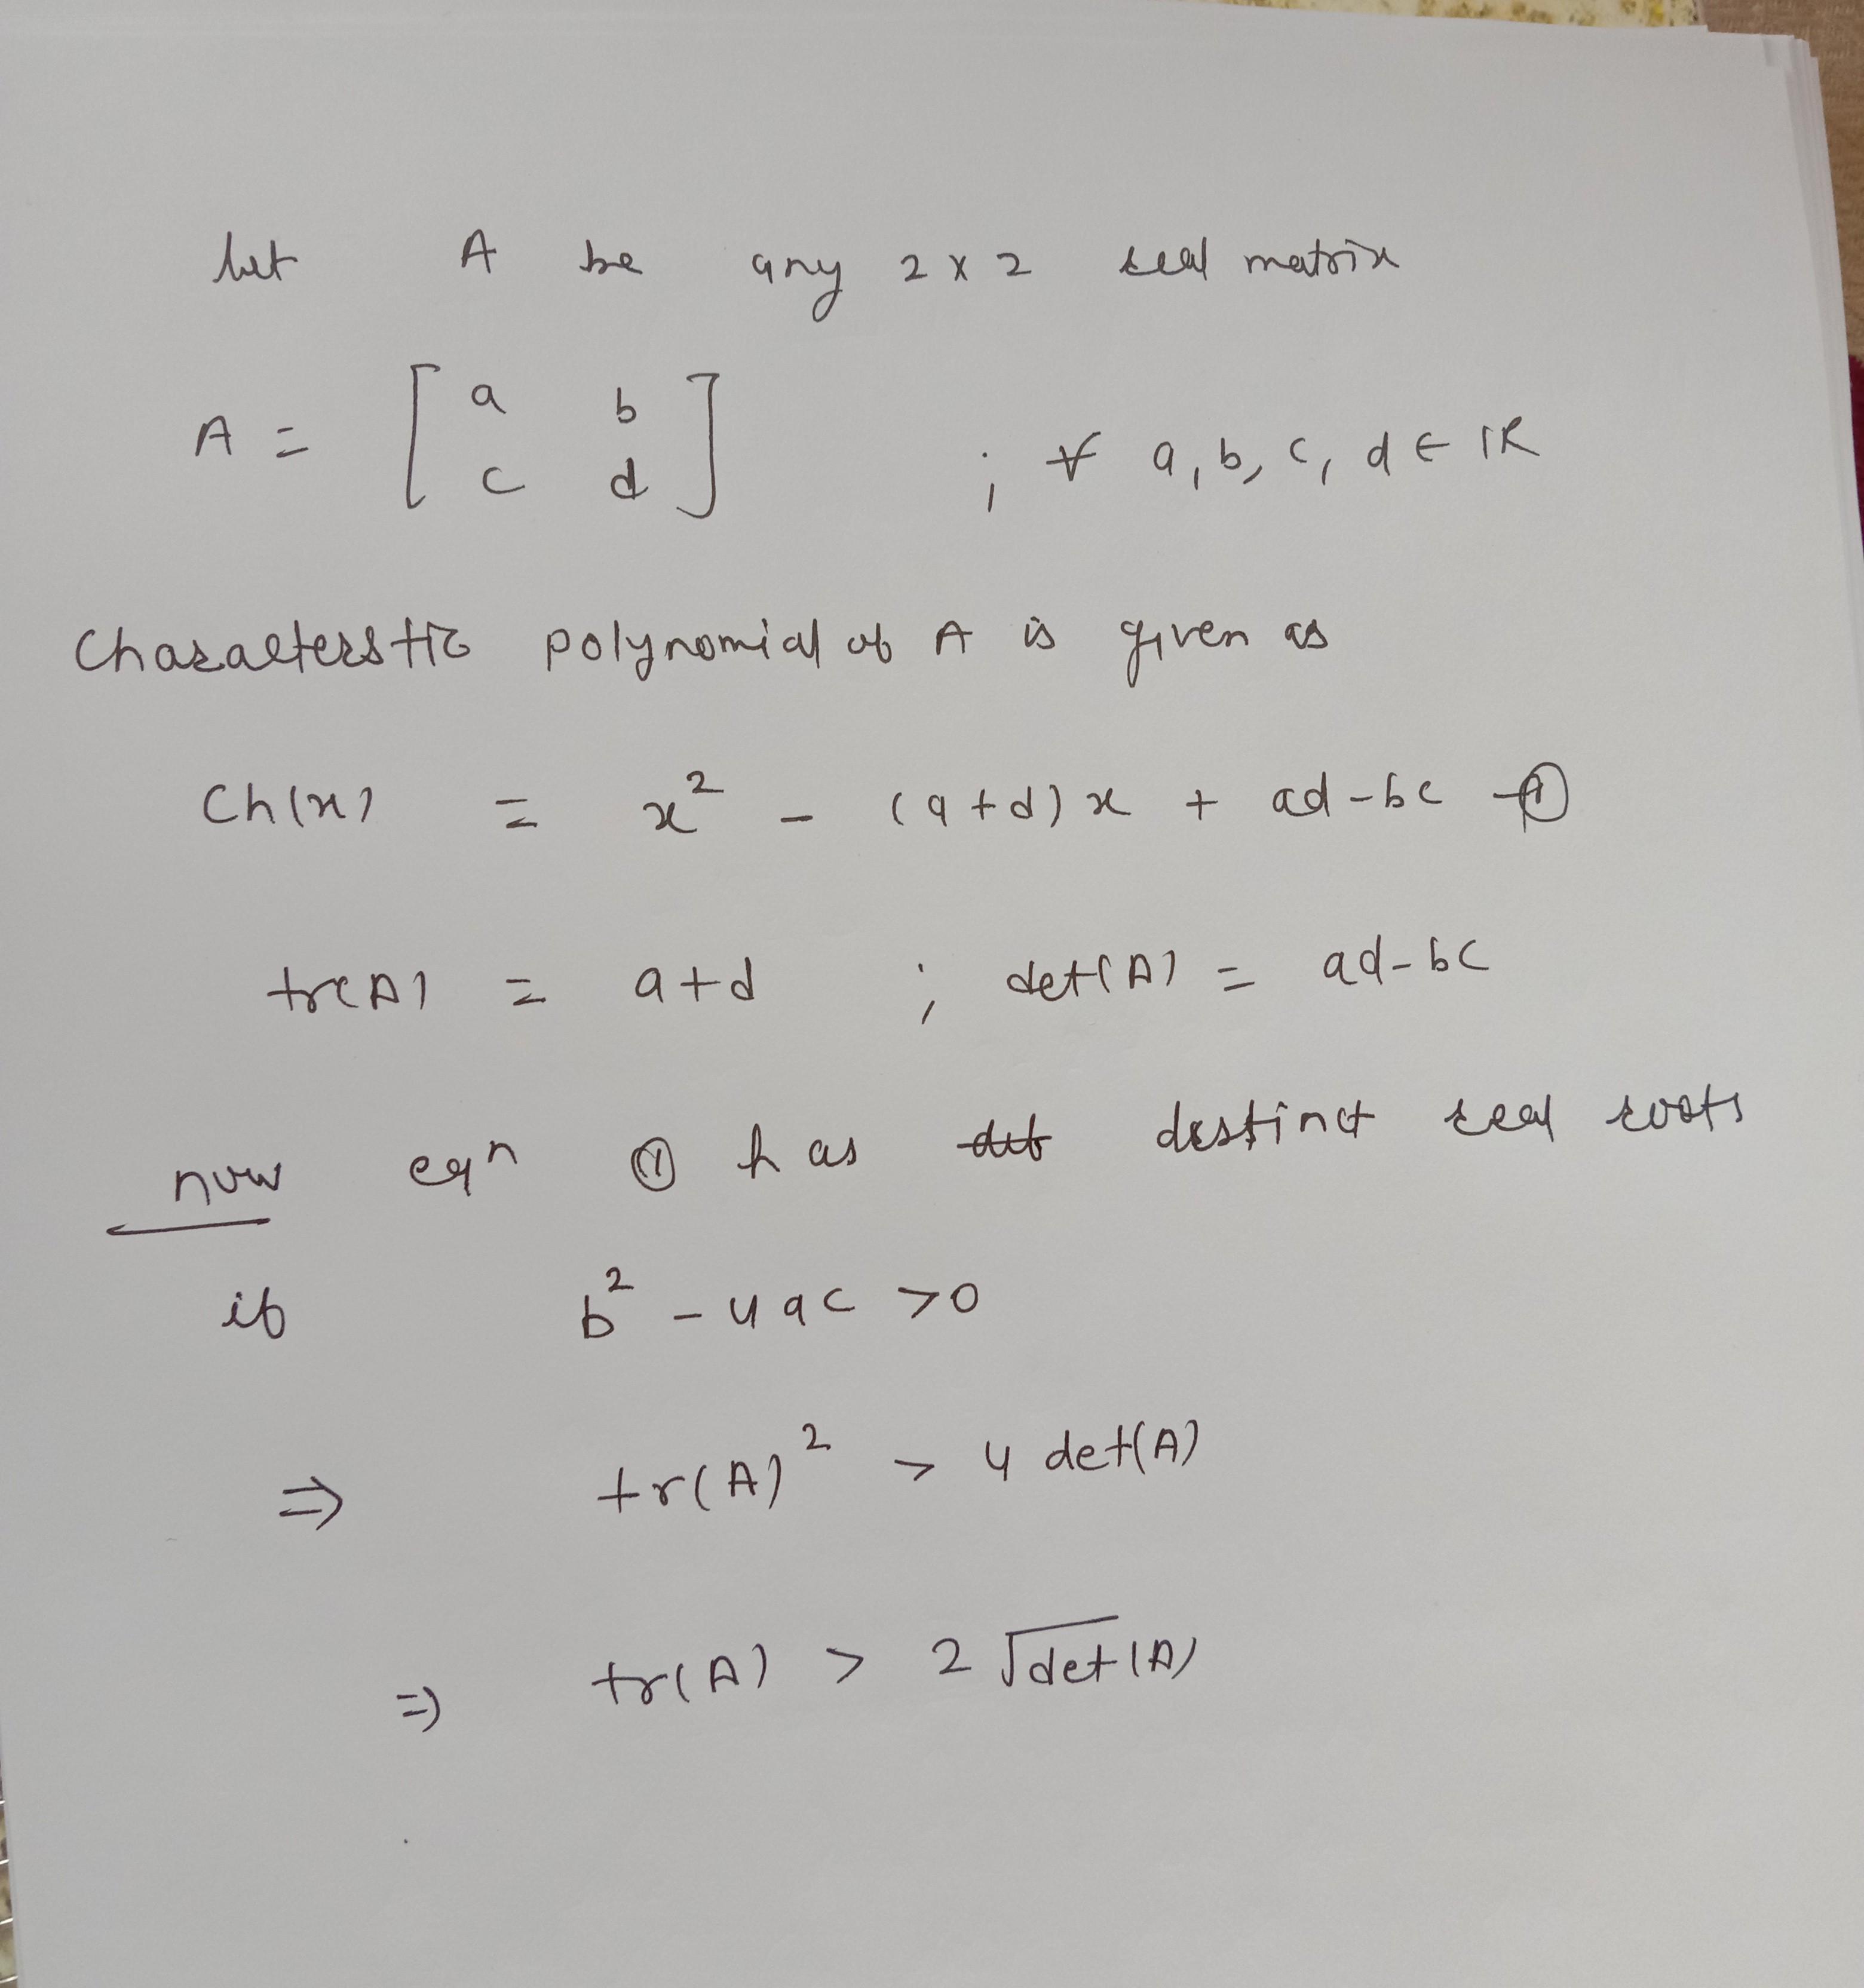 let A be any 2 x 2 real matrix
A = [ a b
c d ] ; ∀ a, b, c, d ∈ IR
Characterstic polynomial of A is given as
Ch(x) = x² - (a+d)x + ad-bc -①
tr(A) = a+d ; det(A) = ad-bc
now eqⁿ ① has distinct real roots
if b² - 4ac >0
⇒ tr(A)² > 4 det(A)
⇒ tr(A) > 2 √det(A)